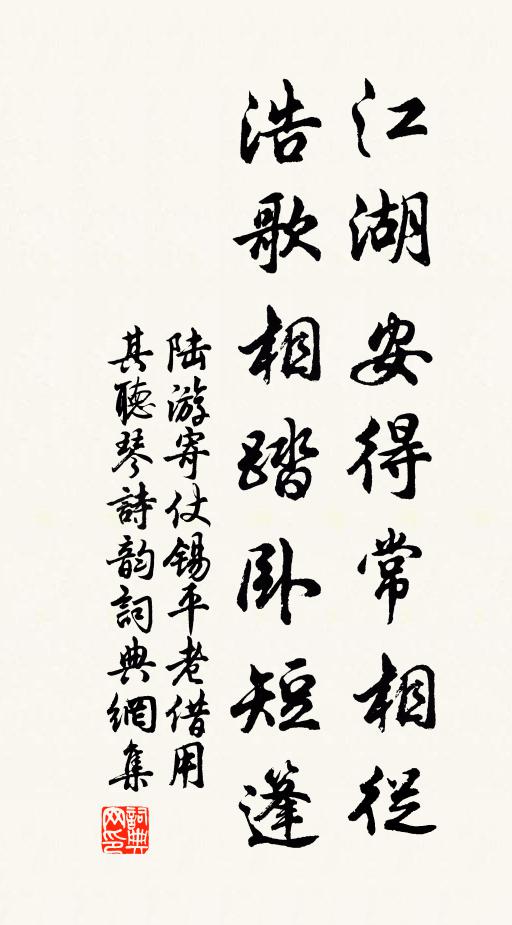 江湖安得常相從
浩歌相踏卧短篷
陆游寄仗锡平老借用
其聽琴詩韵詞典網集
詞典网印